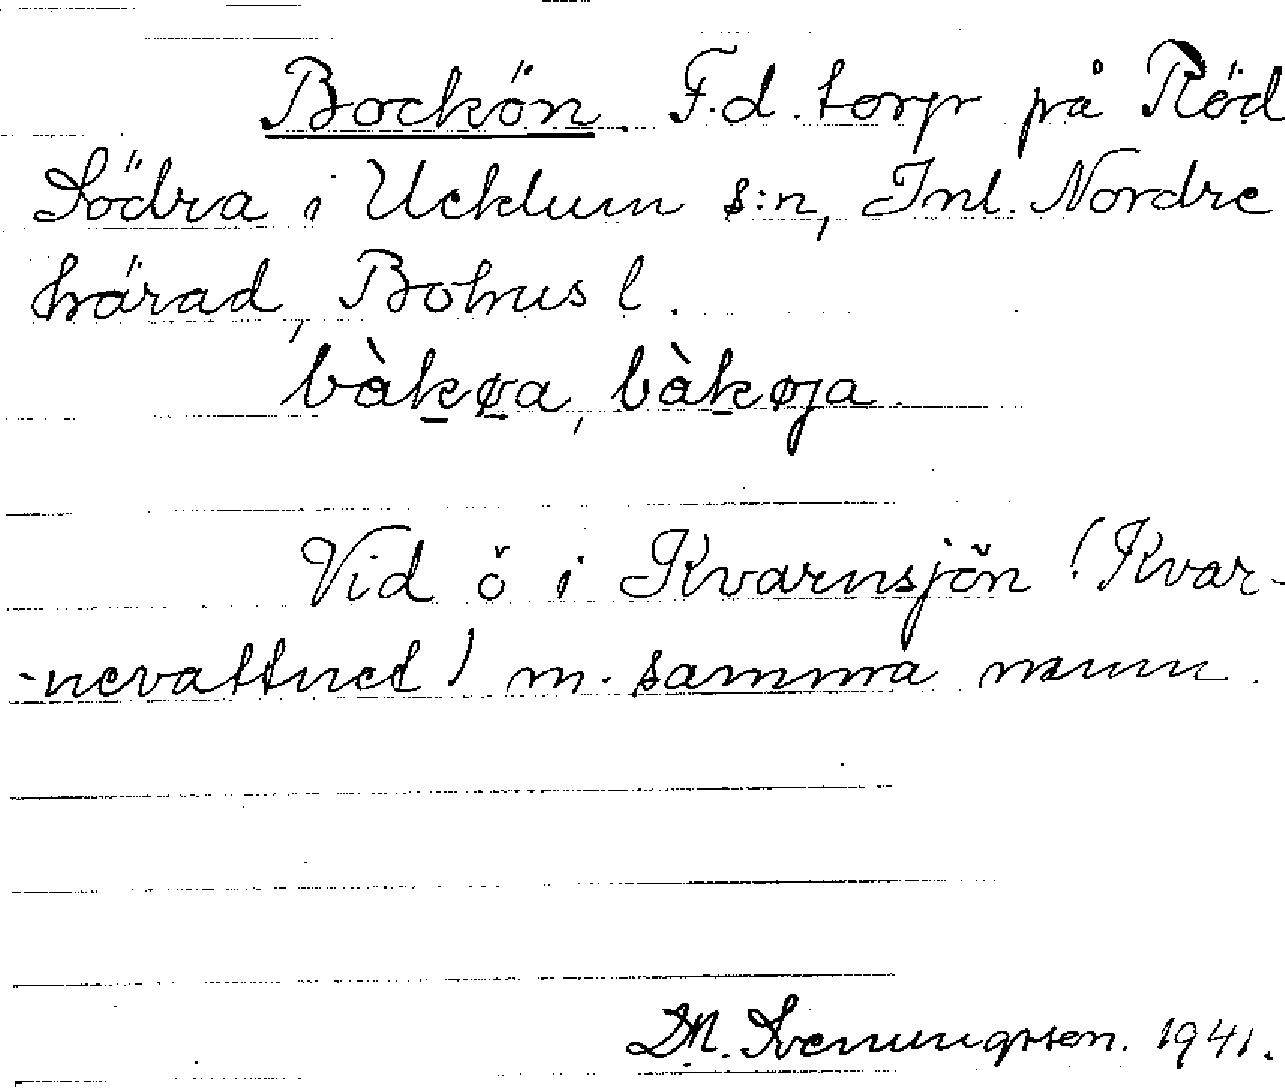 Bockön. F.d. torp på Röd
Södra i Ucklum s:n, Inl. Nordre
härad, Bohus l.
bàkøa, bàkøja.
Vid ö i Kvarnsjön (Kvar-
-nevattnet) m. samma namn.
Svenungsson. 1941.